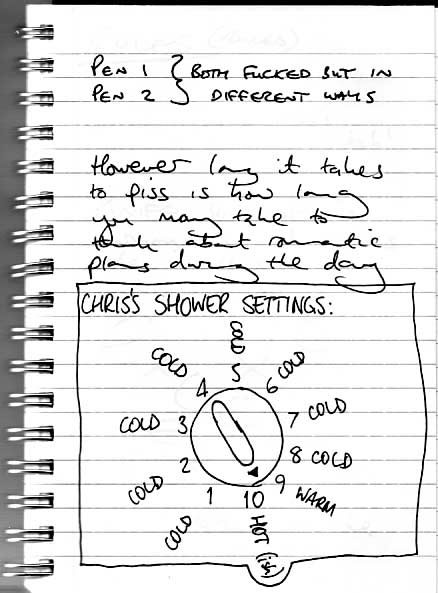 PEN 1 } BOTH FUCKED BUT IN
PEN 2 } DIFFERENT WAYS
However long it takes
to piss is how long
you may take to
think about romantic
plans during the day
CHRIS'S SHOWER SETTINGS:
1 COLD
2 COLD
3 COLD
4 COLD
5 COLD
6 COLD
7 COLD
8 COLD
9 WARM
10 HOT (ish)